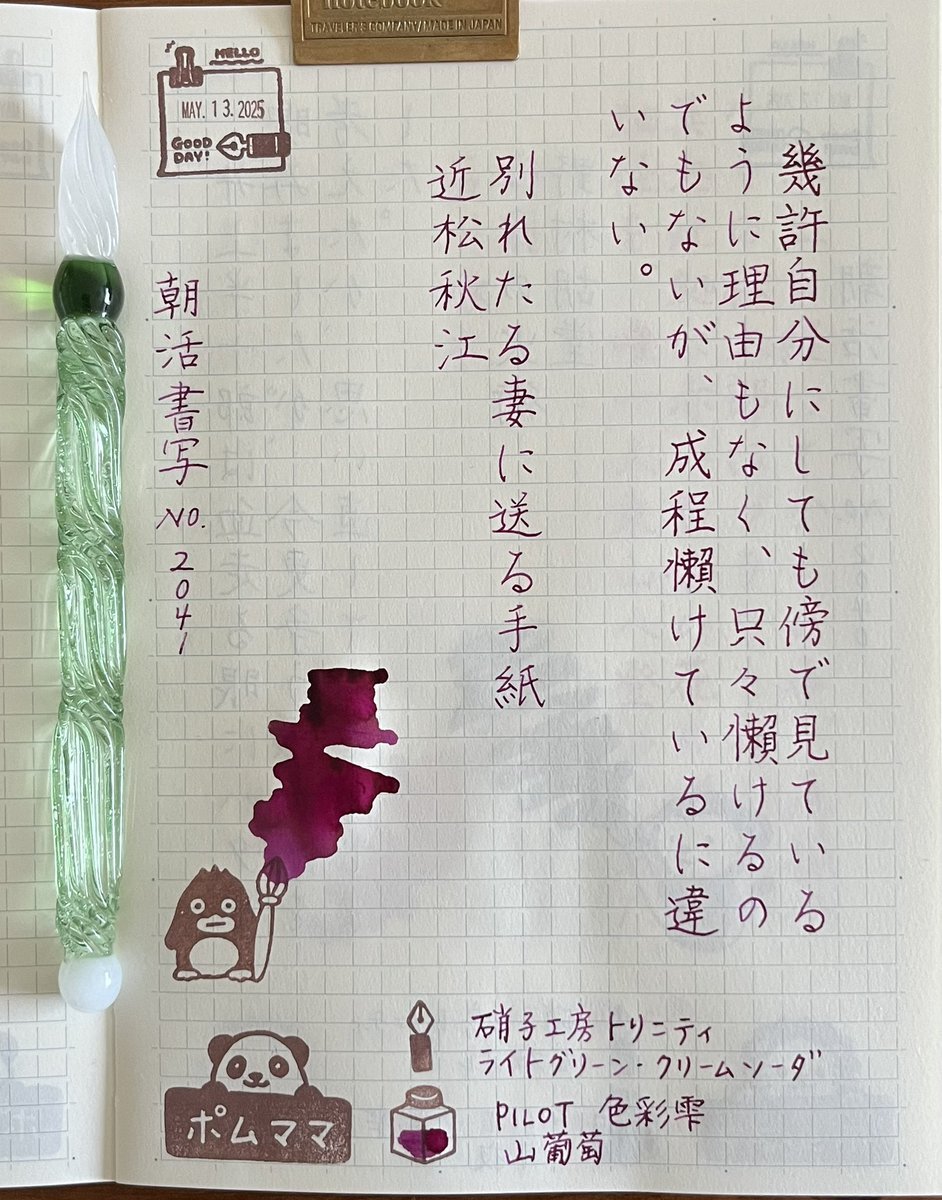 notebook
TRAVELER'S COMPANY/MADE IN JAPAN
HELLO
MAY. 13. 2025
GOOD
DAY!
幾許自分にしても傍で見ている
ように理由もなく、只々懶けるの
でもないが、成程懶けているに違
いない。
別れたる妻に送る手紙
近松秋江
朝活書写 NO. 2041
硝子工房トリニティ
ライトグリーン・クリームソーダ
PILOT 色彩雫
山葡萄
ポムママ